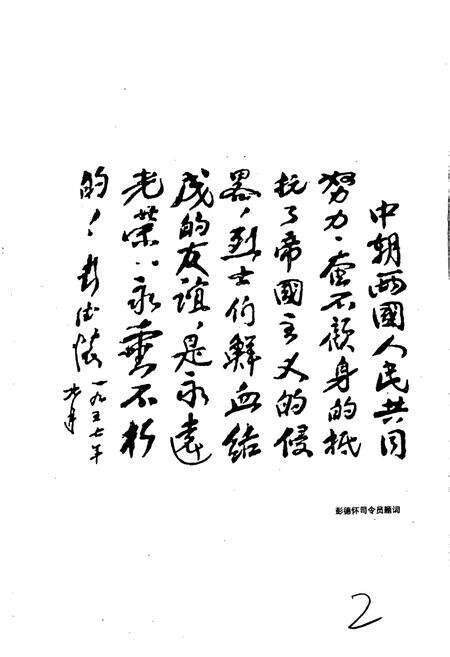 中朝两國人民共同
努力、奋不顧身的抵
抗了帝國主义的侵
畧，烈士们鲜血结
成的友谊，是永遠
光荣、永垂不朽
的！彭德懷
一九五七年
彭德怀司令员题词
2